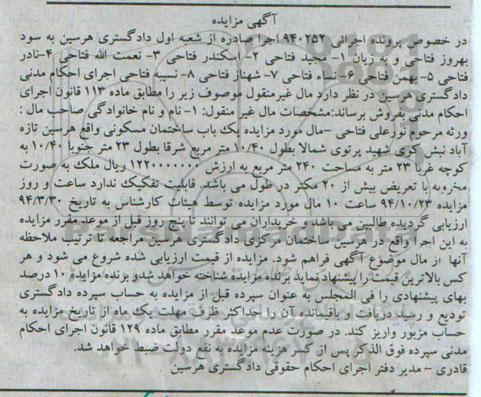 آگهی مزایده
در خصوص پرونده اجرائی ۹۴۰۲۵۲ اجرا صادره از شعبه اول دادگستری هرسین به سود
بهروز فتاحی و به زیان ۱- مجید فتاحی ۲- اسکندر فتاحی ۳- نعمت الله فتاحی ۴-نادر
فتاحی ۵- بهمن فتاحی ۶- نساء فتاحی ۷- شهناز فتاحی ۸- نسیبه فتاحی اجرای احکام مدنی
دادگستری هرسین در نظر دارد مال غیرمنقول موصوف زیر را مطابق ماده ۱۱۳ قانون اجرای
احکام مدنی بفروش برساند:مشخصات مال غیر منقول: ۱- نام و نام خانوادگی صاحب مال :
ورثه مرحوم نورعلی فتاحی -مال مورد مزایده یک باب ساختمان مسکونی واقع هرسین تازه
آباد نبش کوی شهید پرتوی شمالا بطول ۱۰/۴۰ متر مربع شرقا بطول ۲۳ متر جنوبا ۱۰/۴۰ به
کوچه غربا ۲۳ متر به مساحت ۲۴۰ متر مربع به ارزش ۱۲۲۰۰۰۰۰۰۰ ریال ملک به صورت
مخروبه با تعریض بیش از ۲۰ متر در طول می باشد. قابلیت تفکیک ندارد ساعت و روز
مزایده ۹۴/۱۰/۲۳ ساعت ۱۰ مال مورد مزایده توسط هیئات کارشناس به تاریخ ۹۴/۳/۳۰
ارزیابی گردیده طالبین می باشد و خریداران می توانند تا پنج روز قبل از موعد مقرر مزایده
به این اجرا واقع در هرسین ساختمان مرکزی دادگستری هرسین مراجعه تا ترتیب ملاحظه
آنها از مال موضوع آگهی فراهم شود. مزایده از قیمت ارزیابی شده شروع می شود و هر
کس بالاترین قیمت را پیشنهاد نماید برنده مزایده شناخته خواهد شدو برنده مزایده ۱۰ درصد
بهای پیشنهادی را فی المجلس به عنوان سپرده قبل از مزایده به حساب سپرده دادگستری
تودیع و رسید دریافت و باقیمانده آن را حداکثر ظرف مهلت یک ماه از تاریخ مزایده به
حساب مزبور واریز کند. در صورت عدم موعد مقرر مطابق ماده ۱۲۹ قانون اجرای احکام
مدنی سپرده فوق الذکر پس از کسر هزینه مزایده به نفع دولت ضبط خواهد شد.
قادری - مدیر دفتر اجرای احکام حقوقی دادگستری هرسین